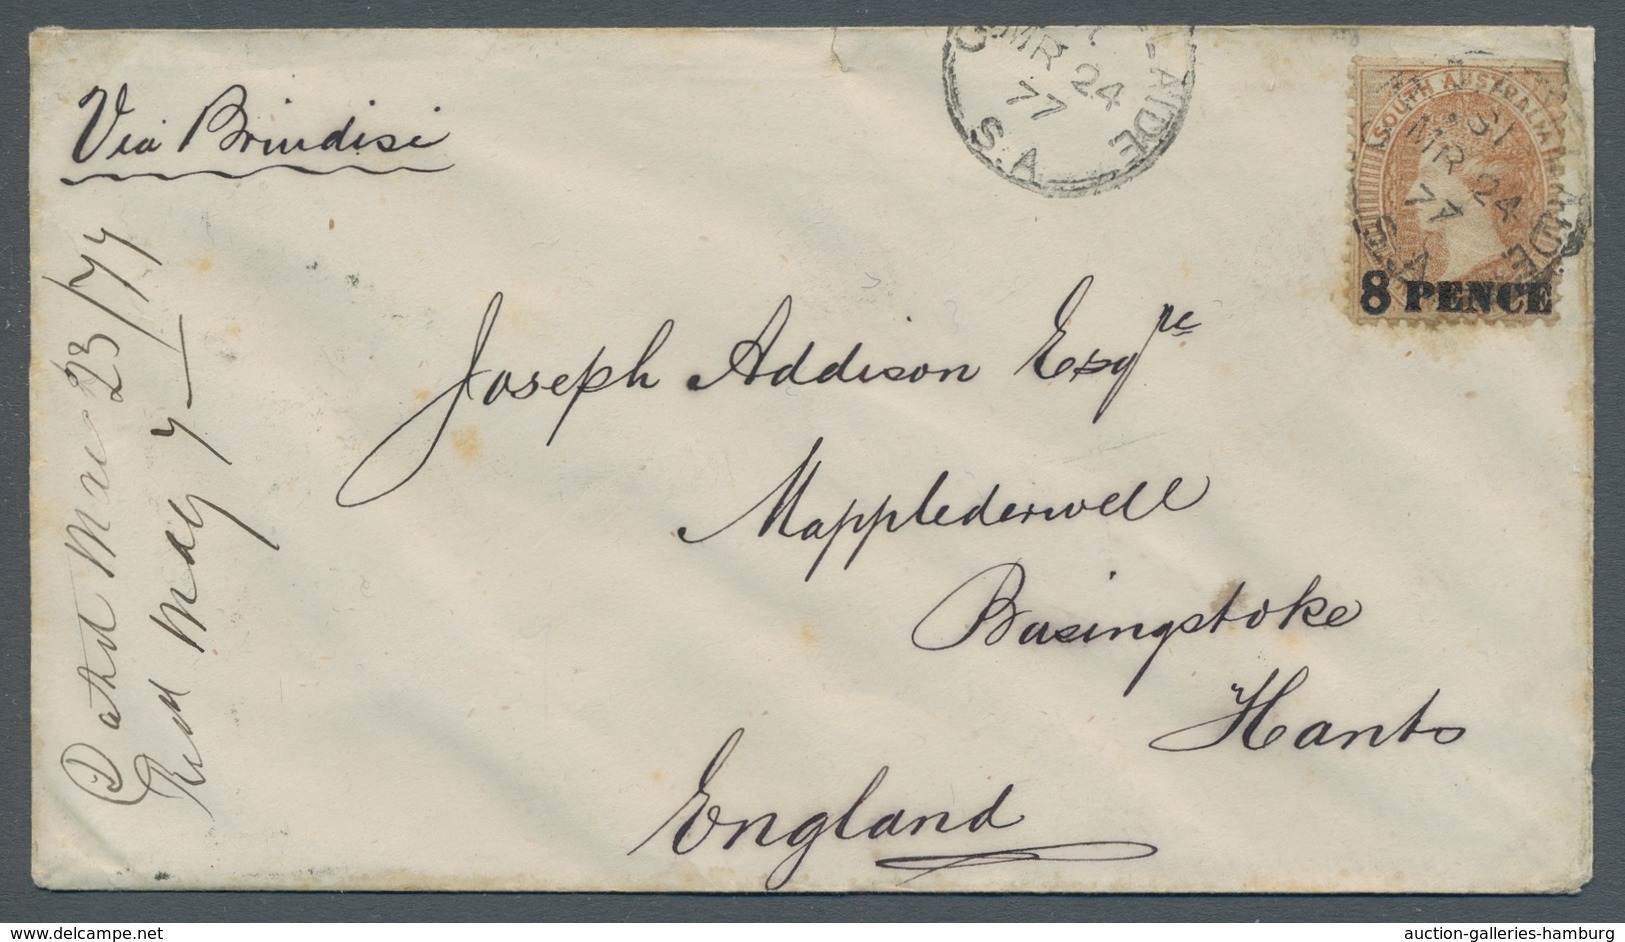 Via Brindisi
G.P.O. ADELAIDE
MR 24
77
S.A.
SOUTH AUSTRALIA
MR 24
77
8 PENCE
Dated Mar 23/77
Recd May 7
Joseph Addison Esqre
Mapplederwell
Basingstoke
Hants
England
www.delcampe.net
auction-galleries-hamburg